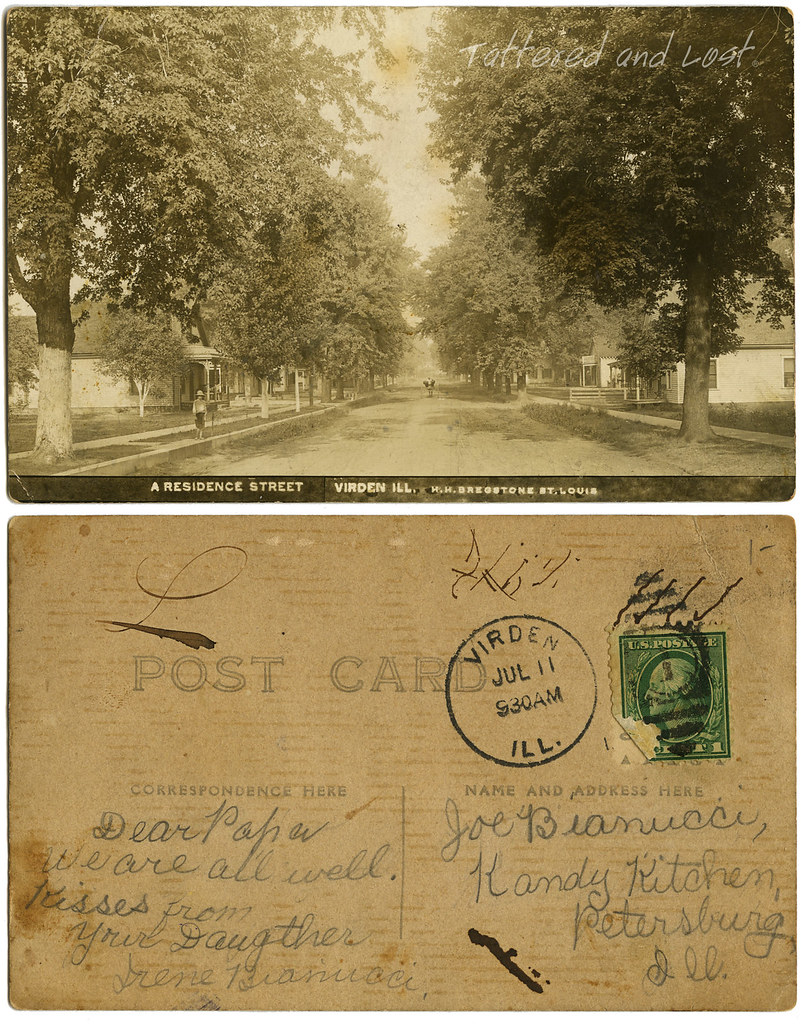 Tattered and Lost
A RESIDENCE STREET VIRDEN ILL. H.H. BREGSTONE ST. LOUIS
POST CARD
VIRDEN
JUL 11
930AM
ILL.
U.S. POSTAGE
1
CORRESPONDENCE HERE
NAME AND ADDRESS HERE
Dear Papa
We are all well.
Kisses from
Your Daugther
Irene Bianucci,
Joe Bianucci,
Kandy Kitchen,
Petersburg
Ill.